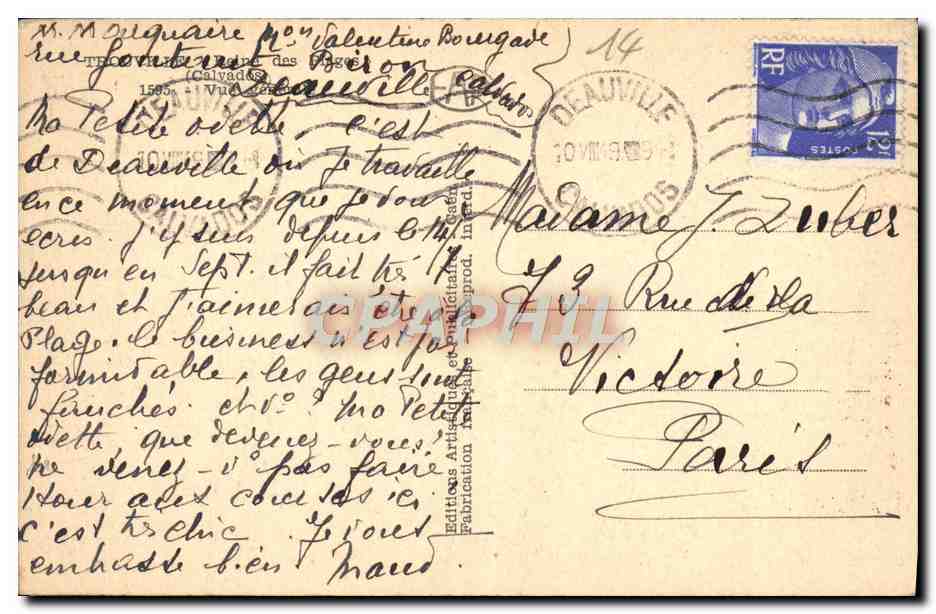 M. M Mon Valentine Bourgade
rue Gontaut Biron
TROUVILLE Reine des Plages
(Calvados)
Deauville Calvados
1595. - Vue
Ma Petite odette, c'est
de Deauville où je travaille
en ce moment que je
ecris. J'y suis depuis le 14/7
jusqu'en Sept. il fait très
beau et j'aimerais être à la
Plage. le business n'est pas
formidable, les gens sont
fauchés. et vs? Ma Petite
odette que devenez-vous?
ne venez-vs pas faire
1 tour aux courses ici
c'est très chic. Je vous
embrasse bien. Maud
Editions Artistiques et Publicitaires Caen
Fabrication française Reprod. interd.
DEAUVILLE
CALVADOS
14
DEAUVILLE
CALVADOS
RF
POSTES
12f
Madame J. Zuber
73 Rue de la
Victoire
Paris
CPAPHIL